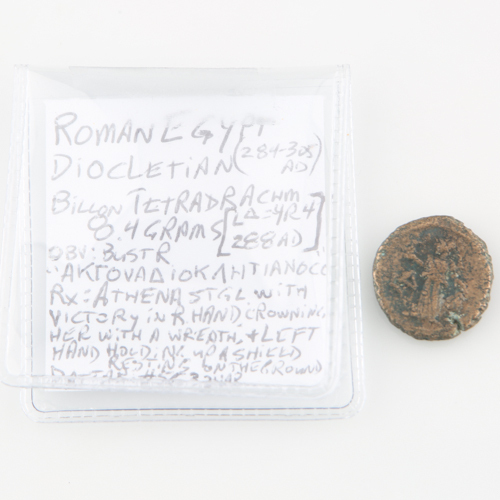 ROMAN EGYPT
DIOCLETIAN (284-305 AD)
BILLON TETRADRACHM
8.4 GRAMS [LΔ=YR4 288AD]
OBV: BUSTR
"AKTOVAΔIOKΛHTIANOCC
RX: ATHENA STGL WITH
VICTORY IN R HAND CROWNING
HER WITH A WREATH, + LEFT
HAND HOLDING UP A SHIELD
RESTING ON THE GROUND